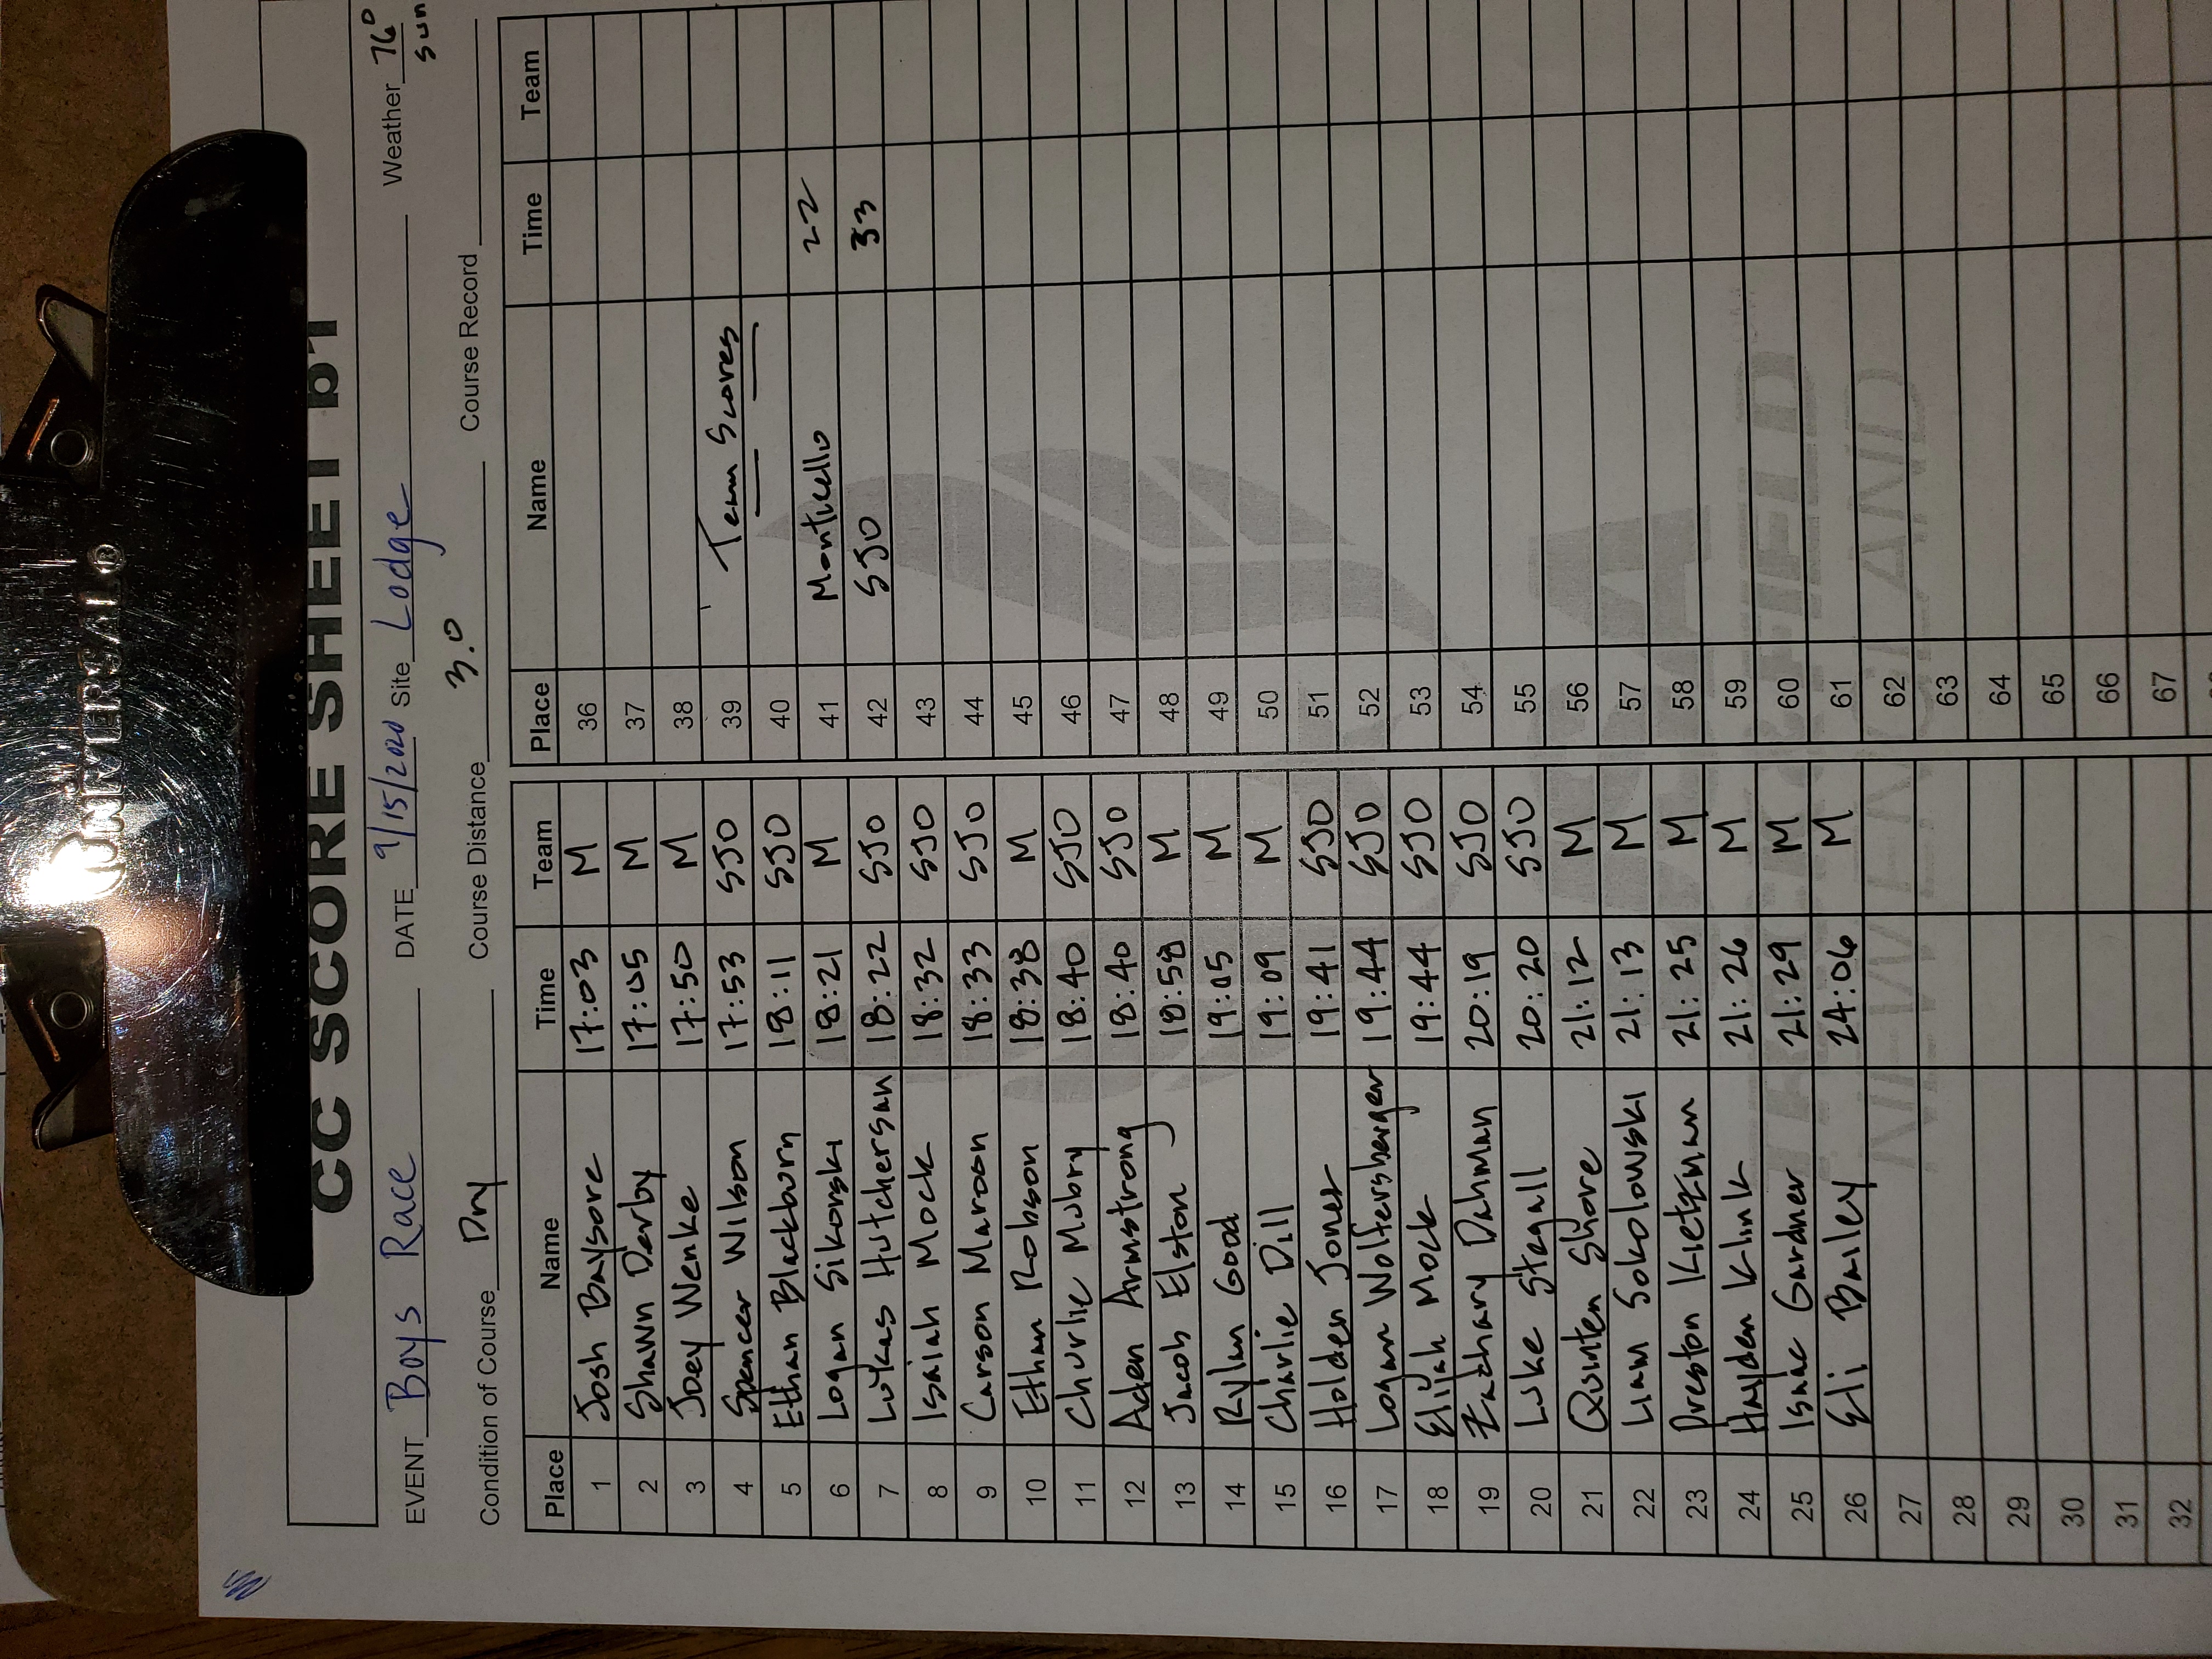 UNIVERSAL®
CC SCORE SHEET
EVENT Boys Race DATE 9/15/2020 Site Lodge Weather 76° sun
Condition of Course Dry Course Distance 3.0 Course Record
Place Name Time Team Place Name Time Team
1 Josh Baysore 17:03 M 36
2 Shawn Derby 17:05 M 37
3 Joey Wenke 17:50 M 38
4 Spencer Wilson 17:53 SJO 39 Team Scores
5 Ethan Blackburn 18:11 SJO 40
6 Logan Sikorski 18:21 M 41 Monticello 22
7 Lukas Hutcherson 18:22 SJO 42 SJO 33
8 Isaiah Mock 18:32 SJO 43
9 Carson Maroon 18:33 SJO 44
10 Ethan Robson 18:38 M 45
11 Charlie Mabry 18:40 SJO 46
12 Aden Armstrong 18:40 SJO 47
13 Jacob Elston 18:58 M 48
14 Rylan Good 19:05 M 49
15 Charlie Dill 19:09 M 50
16 Holden Jones 19:41 SJO 51
17 Logan Wolfersberger 19:44 SJO 52
18 Elijah Mock 19:44 SJO 53
19 Zachary Dahman 20:19 SJO 54
20 Luke Stegall 20:20 SJO 55
21 Quinten Shore 21:12 M 56
22 Liam Sokolowski 21:13 M 57
23 Preston Kietzman 21:25 M 58
24 Hayden Klink 21:26 M 59
25 Isaac Gardner 21:29 M 60
26 Eli Bailey 24:06 M 61
27 62
28 63
29 64
30 65
31 66
32 67